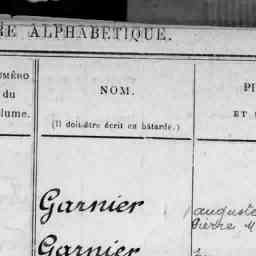 RE ALPHABETIQUE.
UMÉRO
du
lume.
NOM.
(Il doit être écrit en bâtarde.)
PI
ET
Garnier
auguste
Pierre M
Garnier